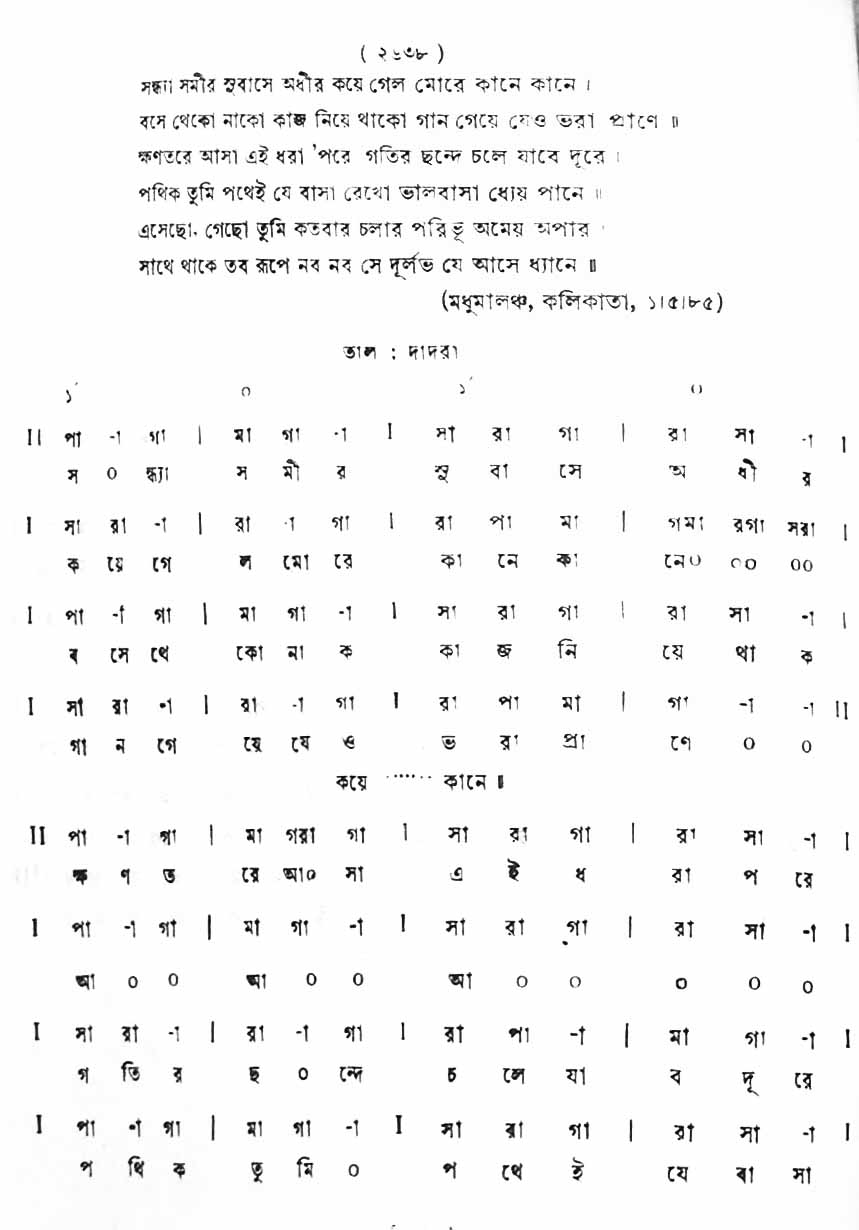 ( ২৬৩৮ )
সন্ধ্যা সমীর সুবাসে অধীর কয়ে গেল মোরে কানে কানে ।
বসে থেকো নাকো কাজ নিয়ে থাকো গান গেয়ে যেও ভরা প্রাণে ॥
ক্ষণতরে আসা এই ধরা 'পরে গতির ছন্দে চলে যাবে দূরে ।
পথিক তুমি পথেই যে বাসা রেখো ভালবাসা ধ্যেয় পানে ॥
এসেছো, গেছো তুমি কতবার চলার পরিভূ অমেয় অপার ।
সাথে থাকে তব রূপে নব নব সে দূর্লভ যে আসে ধ্যানে ॥
(মধুমালঞ্চ, কলিকাতা, ১।৫।৮৫)
তাল : দাদরা
১´ ০ ১´ ০
II পা -া গা | মা গা -া I সা রা গা | রা সা -া I
স ০ ন্ধ্যা স মী র সু বা সে অ ধী র
I সা রা -া | রা -া গা I রা পা মা | গমা রগা সরা I
ক য়ে গে ল মো রে কা নে কা নে০ ০০ ০০
I পা -া গা | মা গা -া I সা রা গা | রা সা -া I
ব সে থে কো না ক কা জ নি য়ে থা ক
I সা রা -া | রা -া গা I রা পা মা | গা -া -া II
গা ন গে য়ে যে ও ভ রা প্রা ণে ০ ০
কয়ে ······· কানে ॥
II পা -া গা | মা গরা গা I সা রা গা | রা সা -া I
ক্ষ ণ ত রে আ০ সা এ ই ধ রা প রে
I পা -া গা | মা গা -া I সা রা গা | রা সা -া I
আ ০ ০ আ ০ ০ আ ০ ০ ০ ০ ০
I সা রা -া | রা -া গা I রা পা -া | মা গা -া I
গ তি র ছ ০ ন্দে চ লে যা ব দূ রে
I পা -া গা | মা গা -া I সা রা গা | রা সা -া I
প থি ক তু মি ০ প থে ই যে বা সা